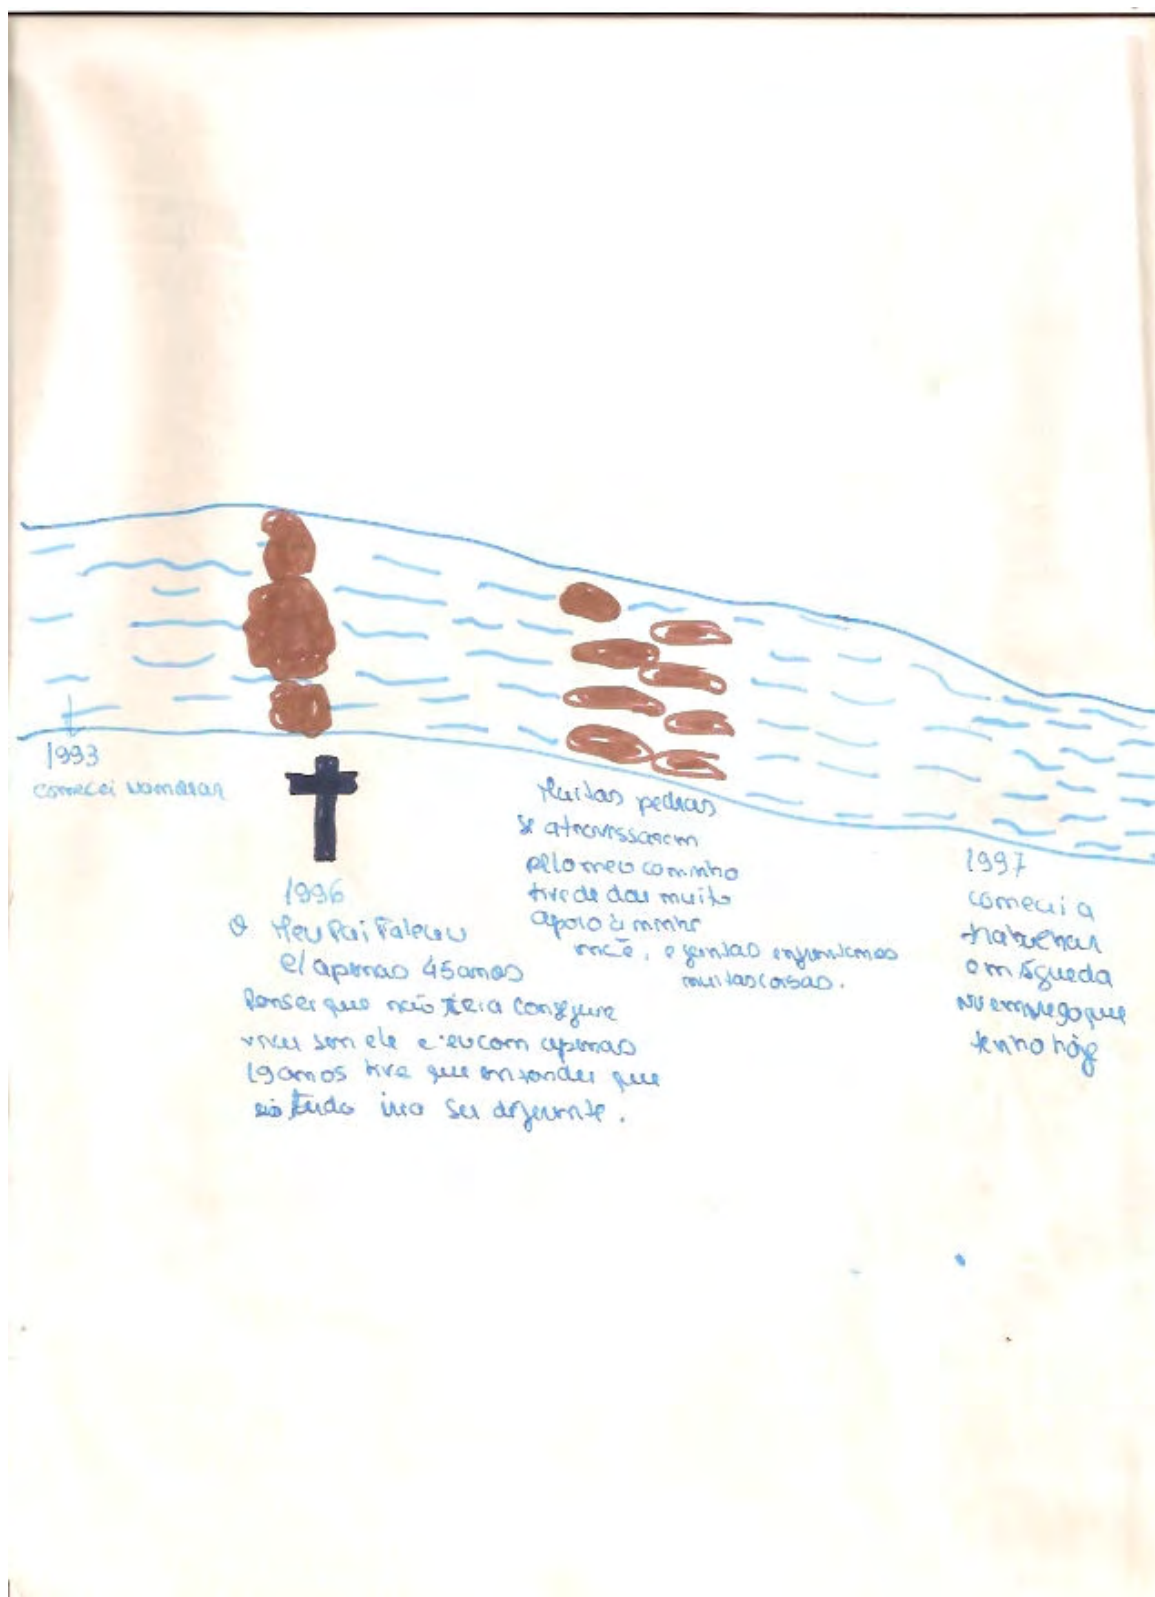 1993
comecei namorar
1996
O Meu Pai Faleceu
c/ apenas 45 anos
Pensei que não iria consegui
viver sem ele e eu com apenas
19 anos tive que entender que
tudo ira ser diferente.
Muitas pedras
se atravessarem
pelo meu caminho
tive de dar muito
apoio à minha
mãe, e juntas enfrentamos
muitas coisas.
1997
comecei a
trabalhar
em Águeda
no emprego que
tenho hoje